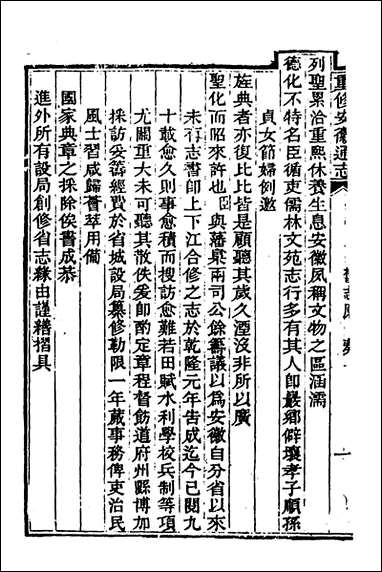 重修安徽通志
列聖累洽重熙休養生息安徽夙稱文物之區涵濡
德化不特名臣循吏儒林文苑志行多有其人即嚴鄉僻壤孝子順孫
貞女節婦例邀
旌典者亦復比比皆是顧聽其歲久湮沒非所以廣
聖化而昭來許也臣與藩臬兩司公餘籌議以爲安徽自分省以來
未有志書即上下江合修之志於乾隆元年告成迄今已閱九
十載愈久則事愈積而搜訪愈難若田賦水利學校兵制等項
尤關重大未可聽其散佚爰即酌定章程督飭道府州縣博加
採訪妥籌經費於省城設局纂修勒限一年蕆事務俾吏治民
風士習咸歸薈萃用備
國家典章之採除俟書成恭
進外所有設局創修省志緣由謹繕摺具